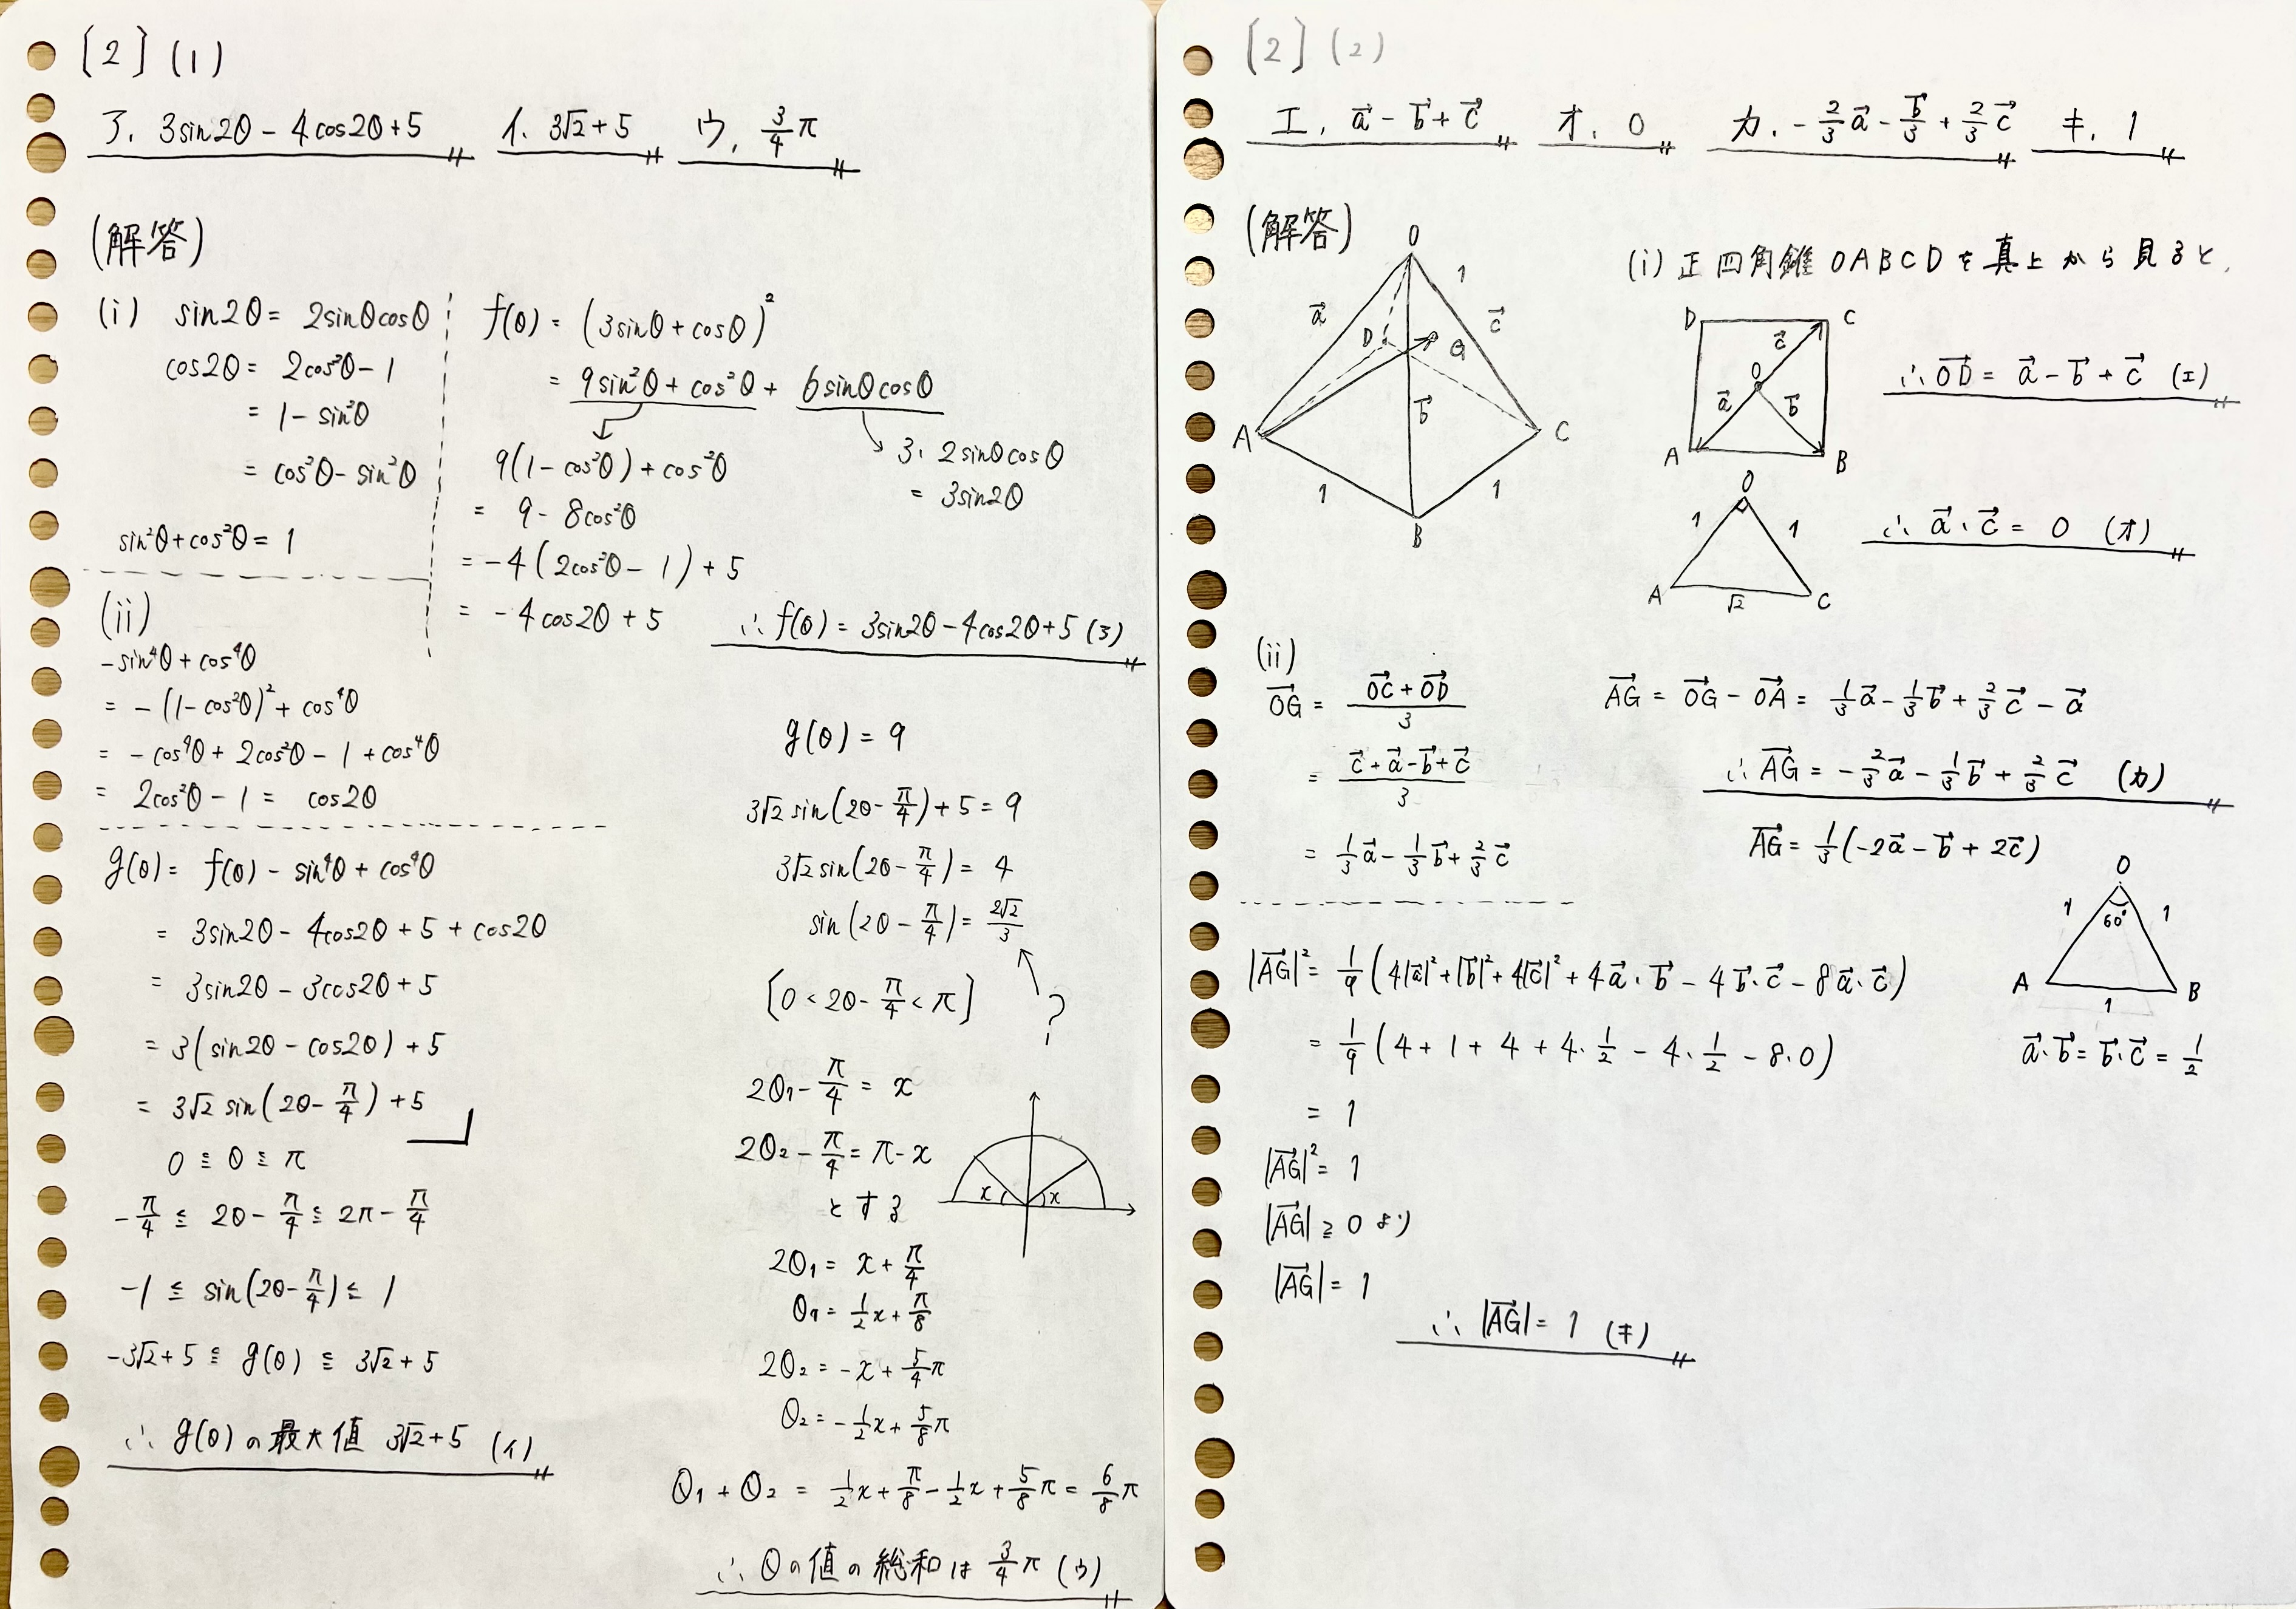 [2] (1)
ア. 3sin2θ - 4cos2θ+5  イ. 3√2+5  ウ. 3/4 π
(解答)
(i) sin2θ = 2sinθcosθ
cos2θ = 2cos²θ-1
= 1-sin²θ
= cos²θ-sin²θ
sin²θ+cos²θ = 1
f(θ) = (3sinθ+cosθ)²
= 9sin²θ+cos²θ + 6sinθcosθ
9(1-cos²θ)+cos²θ
= 9-8cos²θ
= -4(2cos²θ-1)+5
= -4cos2θ+5
3・2sinθcosθ
= 3sin2θ
∴ f(θ) = 3sin2θ-4cos2θ+5 (ア)
(ii)
-sin⁴θ+cos⁴θ
= -(1-cos²θ)²+cos⁴θ
= -cos⁴θ+2cos²θ-1+cos⁴θ
= 2cos²θ-1 = cos2θ
g(θ) = f(θ)-sin⁴θ+cos⁴θ
= 3sin2θ-4cos2θ+5+cos2θ
= 3sin2θ-3cos2θ+5
= 3(sin2θ-cos2θ)+5
= 3√2 sin(2θ-π/4)+5
0 ≦ θ ≦ π
-π/4 ≦ 2θ-π/4 ≦ 2π-π/4
-1 ≦ sin(2θ-π/4) ≦ 1
-3√2+5 ≦ g(θ) ≦ 3√2+5
∴ g(θ)の最大値 3√2+5 (イ)
g(θ) = 9
3√2 sin(2θ-π/4)+5 = 9
3√2 sin(2θ-π/4) = 4
sin(2θ-π/4) = 2√2/3
[0 < 2θ-π/4 < π]
?
2θ₁-π/4 = x
2θ₂-π/4 = π-x
とする
x x
2θ₁ = x+π/4
θ₁ = 1/2 x+π/8
2θ₂ = -x+5/4 π
θ₂ = -1/2 x+5/8 π
θ₁+θ₂ = 1/2 x+π/8-1/2 x+5/8 π = 6/8 π
∴ θの値の総和は 3/4 π (ウ)
[2] (2)
エ. a⃗-b⃗+c⃗  オ. 0  カ. -2/3 a⃗-b⃗/3+2/3 c⃗  キ. 1
(解答)
O
1
a⃗
c⃗
D G
b⃗
A C
1 1
B
(i) 正四角錐OABCDを真上から見ると、
D C
c⃗
O
a⃗ b⃗
A B
∴ OD⃗ = a⃗-b⃗+c⃗ (エ)
O
1 1
A √2 C
∴ a⃗・c⃗ = 0 (オ)
(ii)
OG⃗ = (OC⃗+OD⃗)/3
= (c⃗+a⃗-b⃗+c⃗)/3
= 1/3 a⃗-1/3 b⃗+2/3 c⃗
AG⃗ = OG⃗-OA⃗ = 1/3 a⃗-1/3 b⃗+2/3 c⃗-a⃗
∴ AG⃗ = -2/3 a⃗-1/3 b⃗+2/3 c⃗ (カ)
AG⃗ = 1/3(-2a⃗-b⃗+2c⃗)
O
1 60° 1
A 1 B
a⃗・b⃗ = b⃗・c⃗ = 1/2
|AG⃗|² = 1/9(4|a⃗|²+|b⃗|²+4|c⃗|²+4a⃗・b⃗-4b⃗・c⃗-8a⃗・c⃗)
= 1/9(4+1+4+4・1/2-4・1/2-8・0)
= 1
|AG⃗|² = 1
|AG⃗| ≧ 0 より
|AG⃗| = 1
∴ |AG⃗| = 1 (キ)